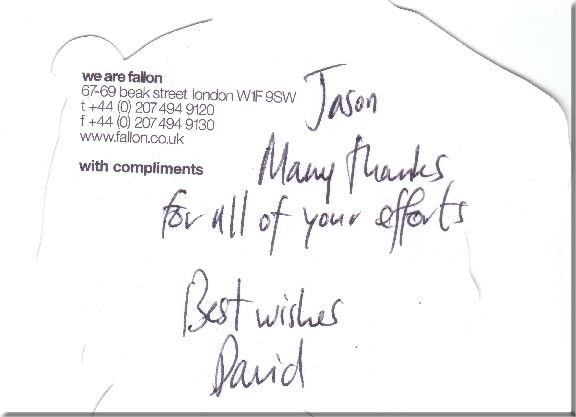 we are fallon
67-69 beak street london W1F 9SW
t +44 (0) 207 494 9120
f +44 (0) 207 494 9130
www.fallon.co.uk
with compliments
Jason
Many thanks
for all of your efforts
Best wishes
David